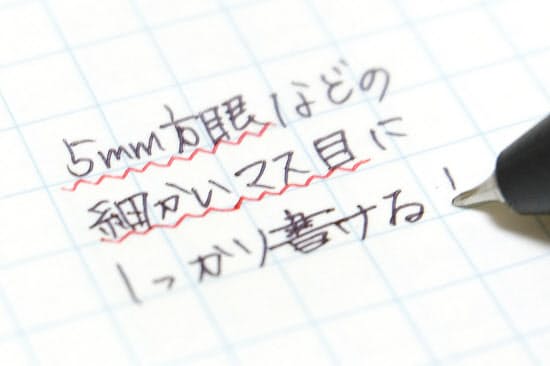 5mm方眼などの
細かいマス目に
しっかり書ける!